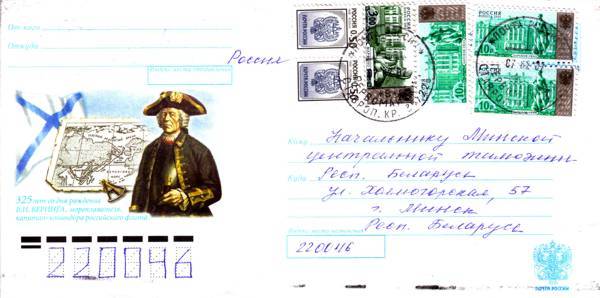 От кого
Откуда
Россия
Индекс места отправления
325 лет со дня рождения
В.И. БЕРИНГА, мореплавателя,
капитан-командора российского флота
220046
ПОЧТА РОССИИ
РОССИЯ 0.50
РОССИЯ
10
РОССИЯ
10
10
СТАВРОП. КР.
Кому Начальнику Минской
центральной таможни
Куда Респ. Беларусь
ул. Холмогорская, 57
г. Минск
Респ. Беларусь
Индекс места назначения
220046
ПОЧТА РОССИИ